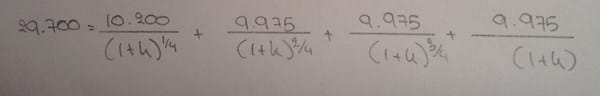 29.700 = 10.200/(1+k)^1/4 + 9.975/(1+k)^2/4 + 9.975/(1+k)^3/4 + 9.975/(1+k)